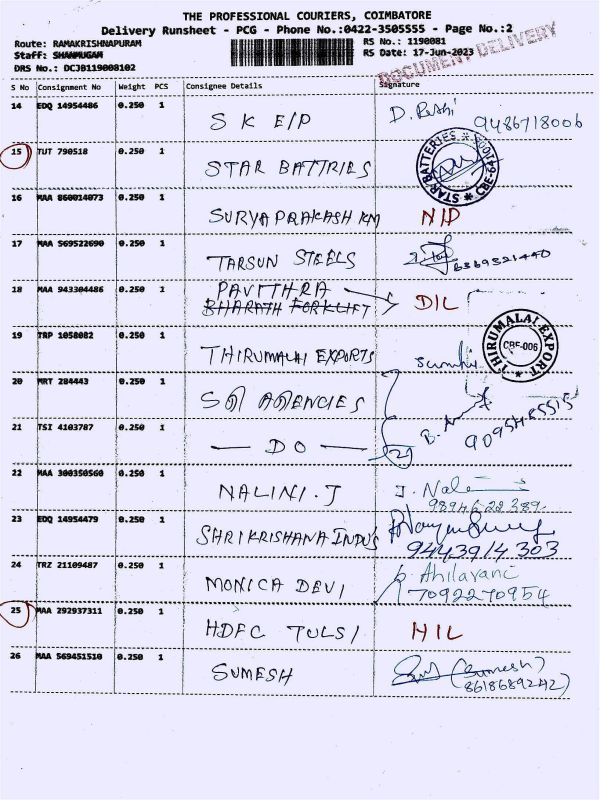 THE PROFESSIONAL COURIERS, COIMBATORE
Delivery Runsheet - PCG - Phone No.:0422-3505555 - Page No.:2
Route: RAMAKRISHNAPURAM RS No.: 1190081
Staff: SHANMUGAM RS Date: 17-Jun-2023
DRS No.: DCJB119008102
DOCUMENT DELIVERY
S No Consignment No Weight PCS Consignee Details Signature
14 EDQ 14954486 0.250 1 S K E/P D. Rishi 9486718006
15 TUT 790518 0.250 1 STAR BATTRIES STAR BATTERIES
16 MAA 860014073 0.250 1 SURYA PRAKASH KM N/D
17 MAA 569522690 0.250 1 TARSUN STEELS 6369321440
18 MAA 943304486 0.250 1 PAVITHRA D/L
BHARATH FORKLIFT
19 TRP 1058082 0.250 1 THIRUMALAI EXPORTS THIRUMALAI EXPORT CBE-006
20 MRT 284443 0.250 1 SRI AGENCIES
21 TSI 4103787 0.250 1 — DO —
22 MAA 300350560 0.250 1 NALINI. J J. Nalini 98946 22389
23 EDQ 14954479 0.250 1 SHRI KRISHANA INDU'S 9443914303
24 TRZ 21109487 0.250 1 MONICA DEVI P. Ahilavani 7092270954
25 MAA 292937311 0.250 1 HDFC TULSI
26 MAA 569451510 0.250 1 SUMESH (Sumesh)